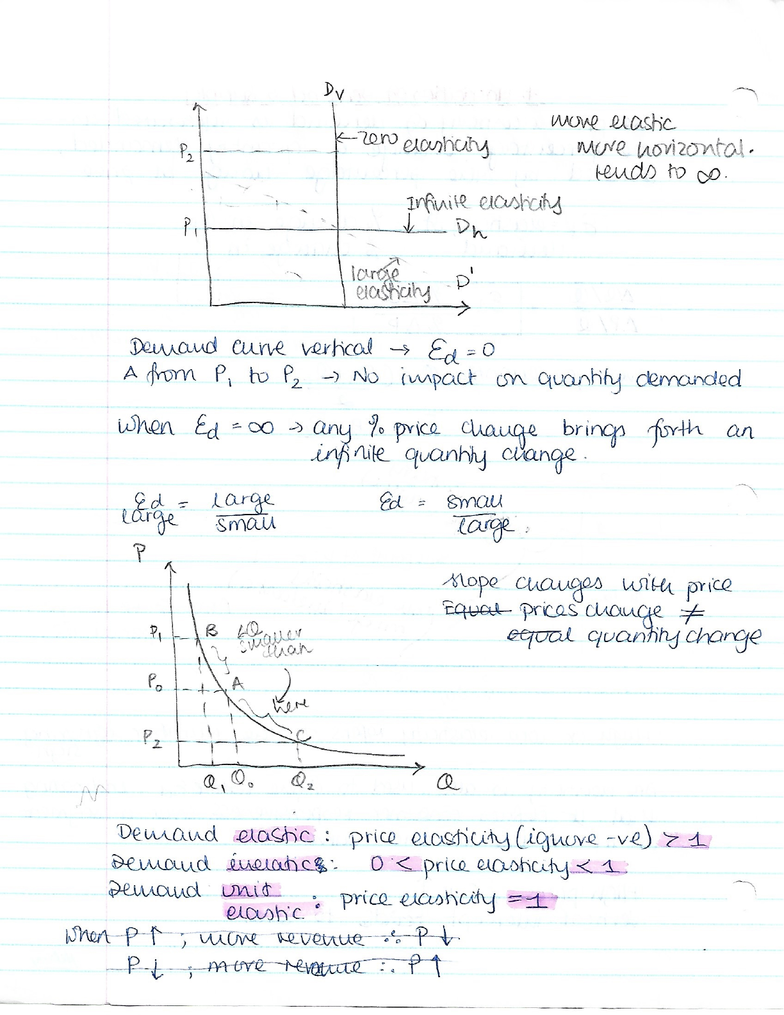 Dv
P2
← zero elasticity
more elastic
more horizontal.
tends to ∞.
Infinite elasticity
P1
Dh
large
elasticity
D'
Demand curve vertical → Ed = 0
Δ from P1 to P2 → No impact on quantity demanded
when Ed = ∞ → any % price change brings forth an
infinite quantity change.
Ed large = large / small
Ed = small / large.
P
slope changes with price
Equal prices change ≠
equal quantity change
P1
B
smaller
than
P0
A
here
P2
C
Q1 Q0 Q2
Q
Demand elastic : price elasticity (ignore -ve) > 1
Demand inelastics: 0 < price elasticity < 1
Demand unit
elastic : price elasticity = 1
when P ↑ ; more revenue ∴ P ↓
P ↓ ; more revenue ∴ P ↑